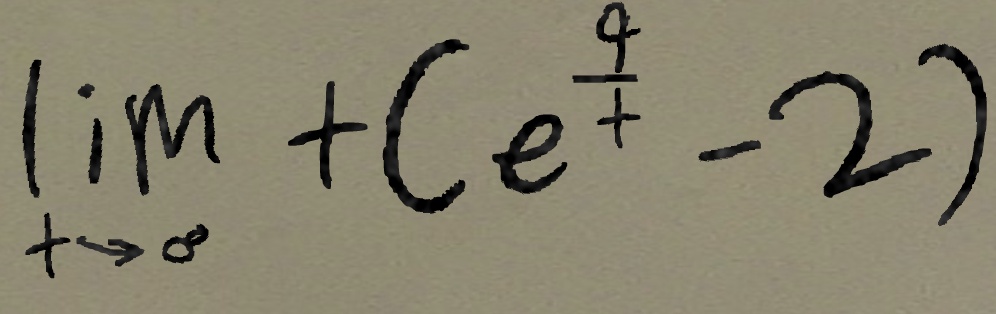 \lim_{t \to \infty} t(e^{\frac{9}{t}} - 2)